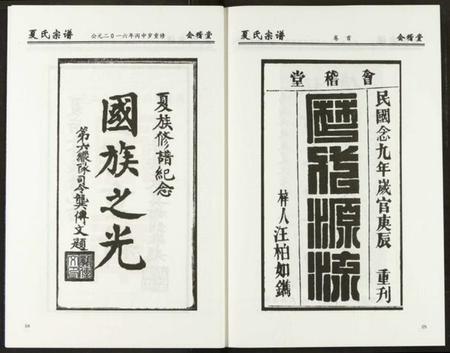 夏氏宗谱
公元二0一六年丙申岁重修
会稽堂
夏族修譜紀念
國族之光
第六縱隊司令龔傳文題
夏氏宗谱
卷首
会稽堂
會稽堂
民國念九年歲官庚辰 重刊
源流
梓人汪柏如鐫